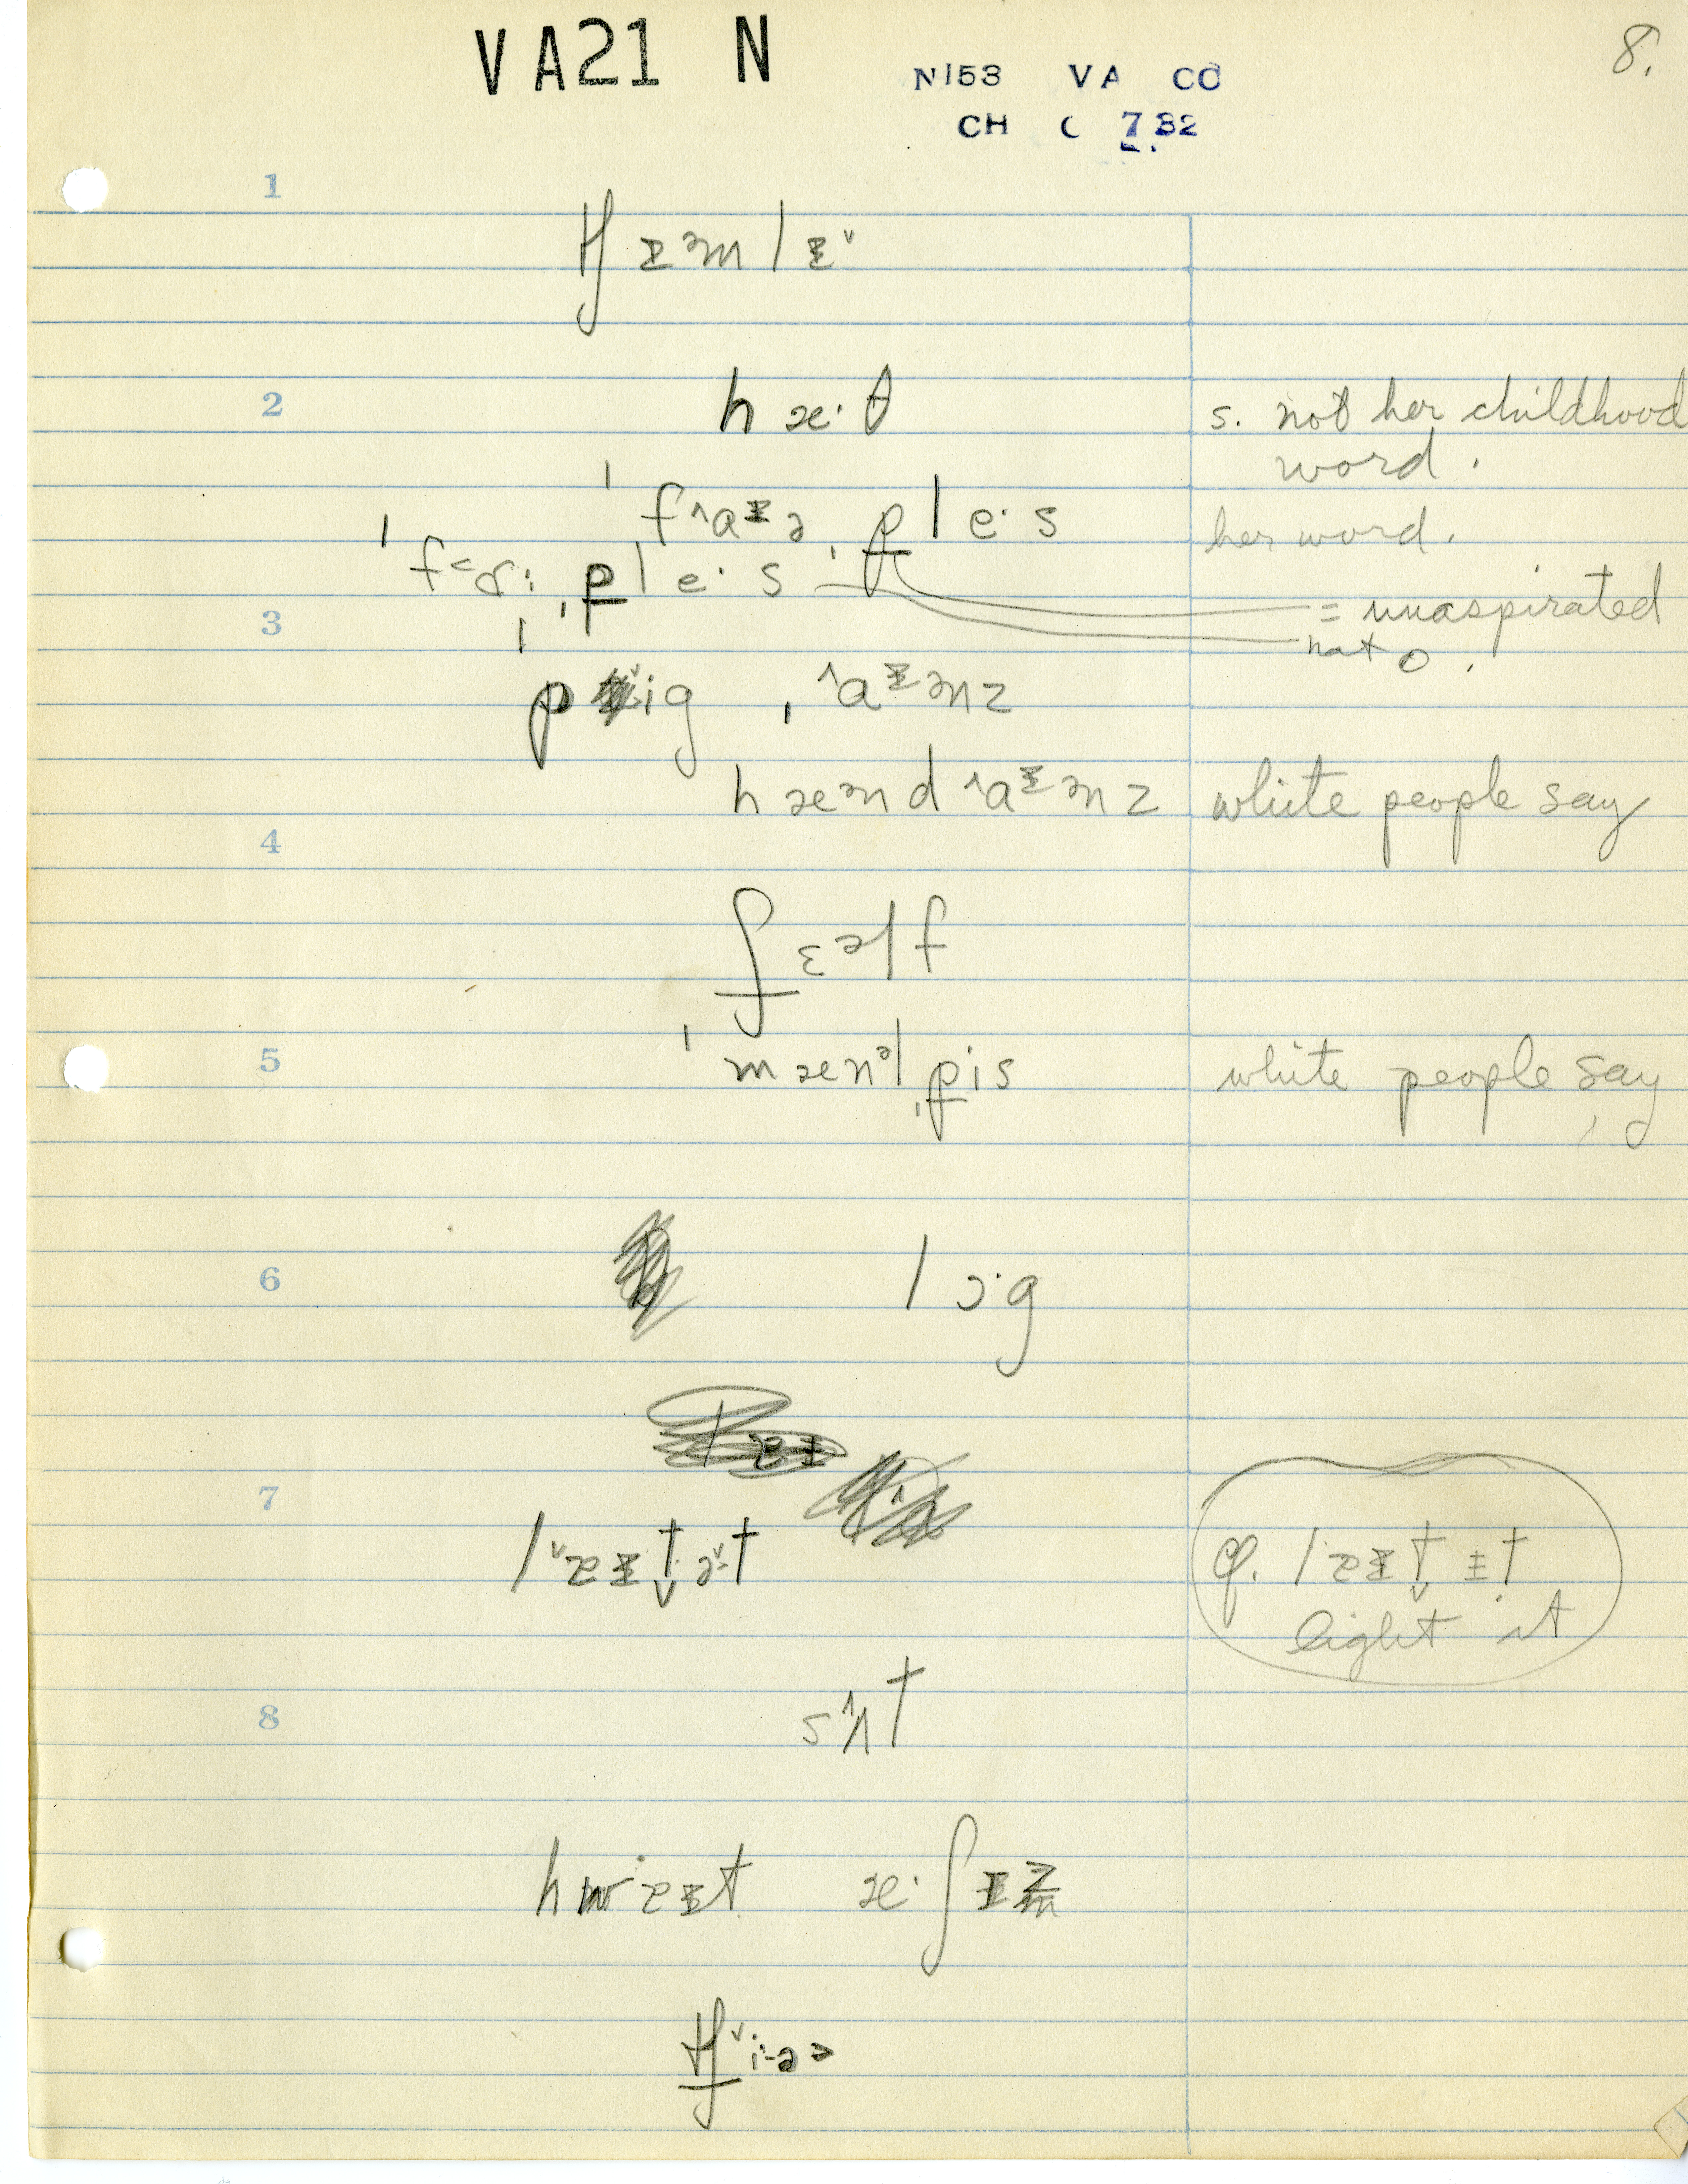 VA21 N
N153 VA CO
8.
CH C 7 32
1
tʃɪᵊmlɪ˅
2
hæ·θ
s. not her childhood
word.
ˈf˄aɪə ˌp͇le·s
her word.
ˈf<ɚ· ˌp͇le·s
= unaspirated
3
not o.
ˈp˅ig ˌ˄aɪᵊnz
hæᵊnd ˄aɪᵊnz
white people say
4
ʃɛᵊlf
5
ˈmænᵊl ˌp͇is
white people say
6
lɔ·g
7
l˅ɐɪt̬ə˅t
cf. lɐɪt̬ ɪt
light it
8
s˄ʌt
hwɐɪt æ·ʃɪz
tʃ˅i·ə>